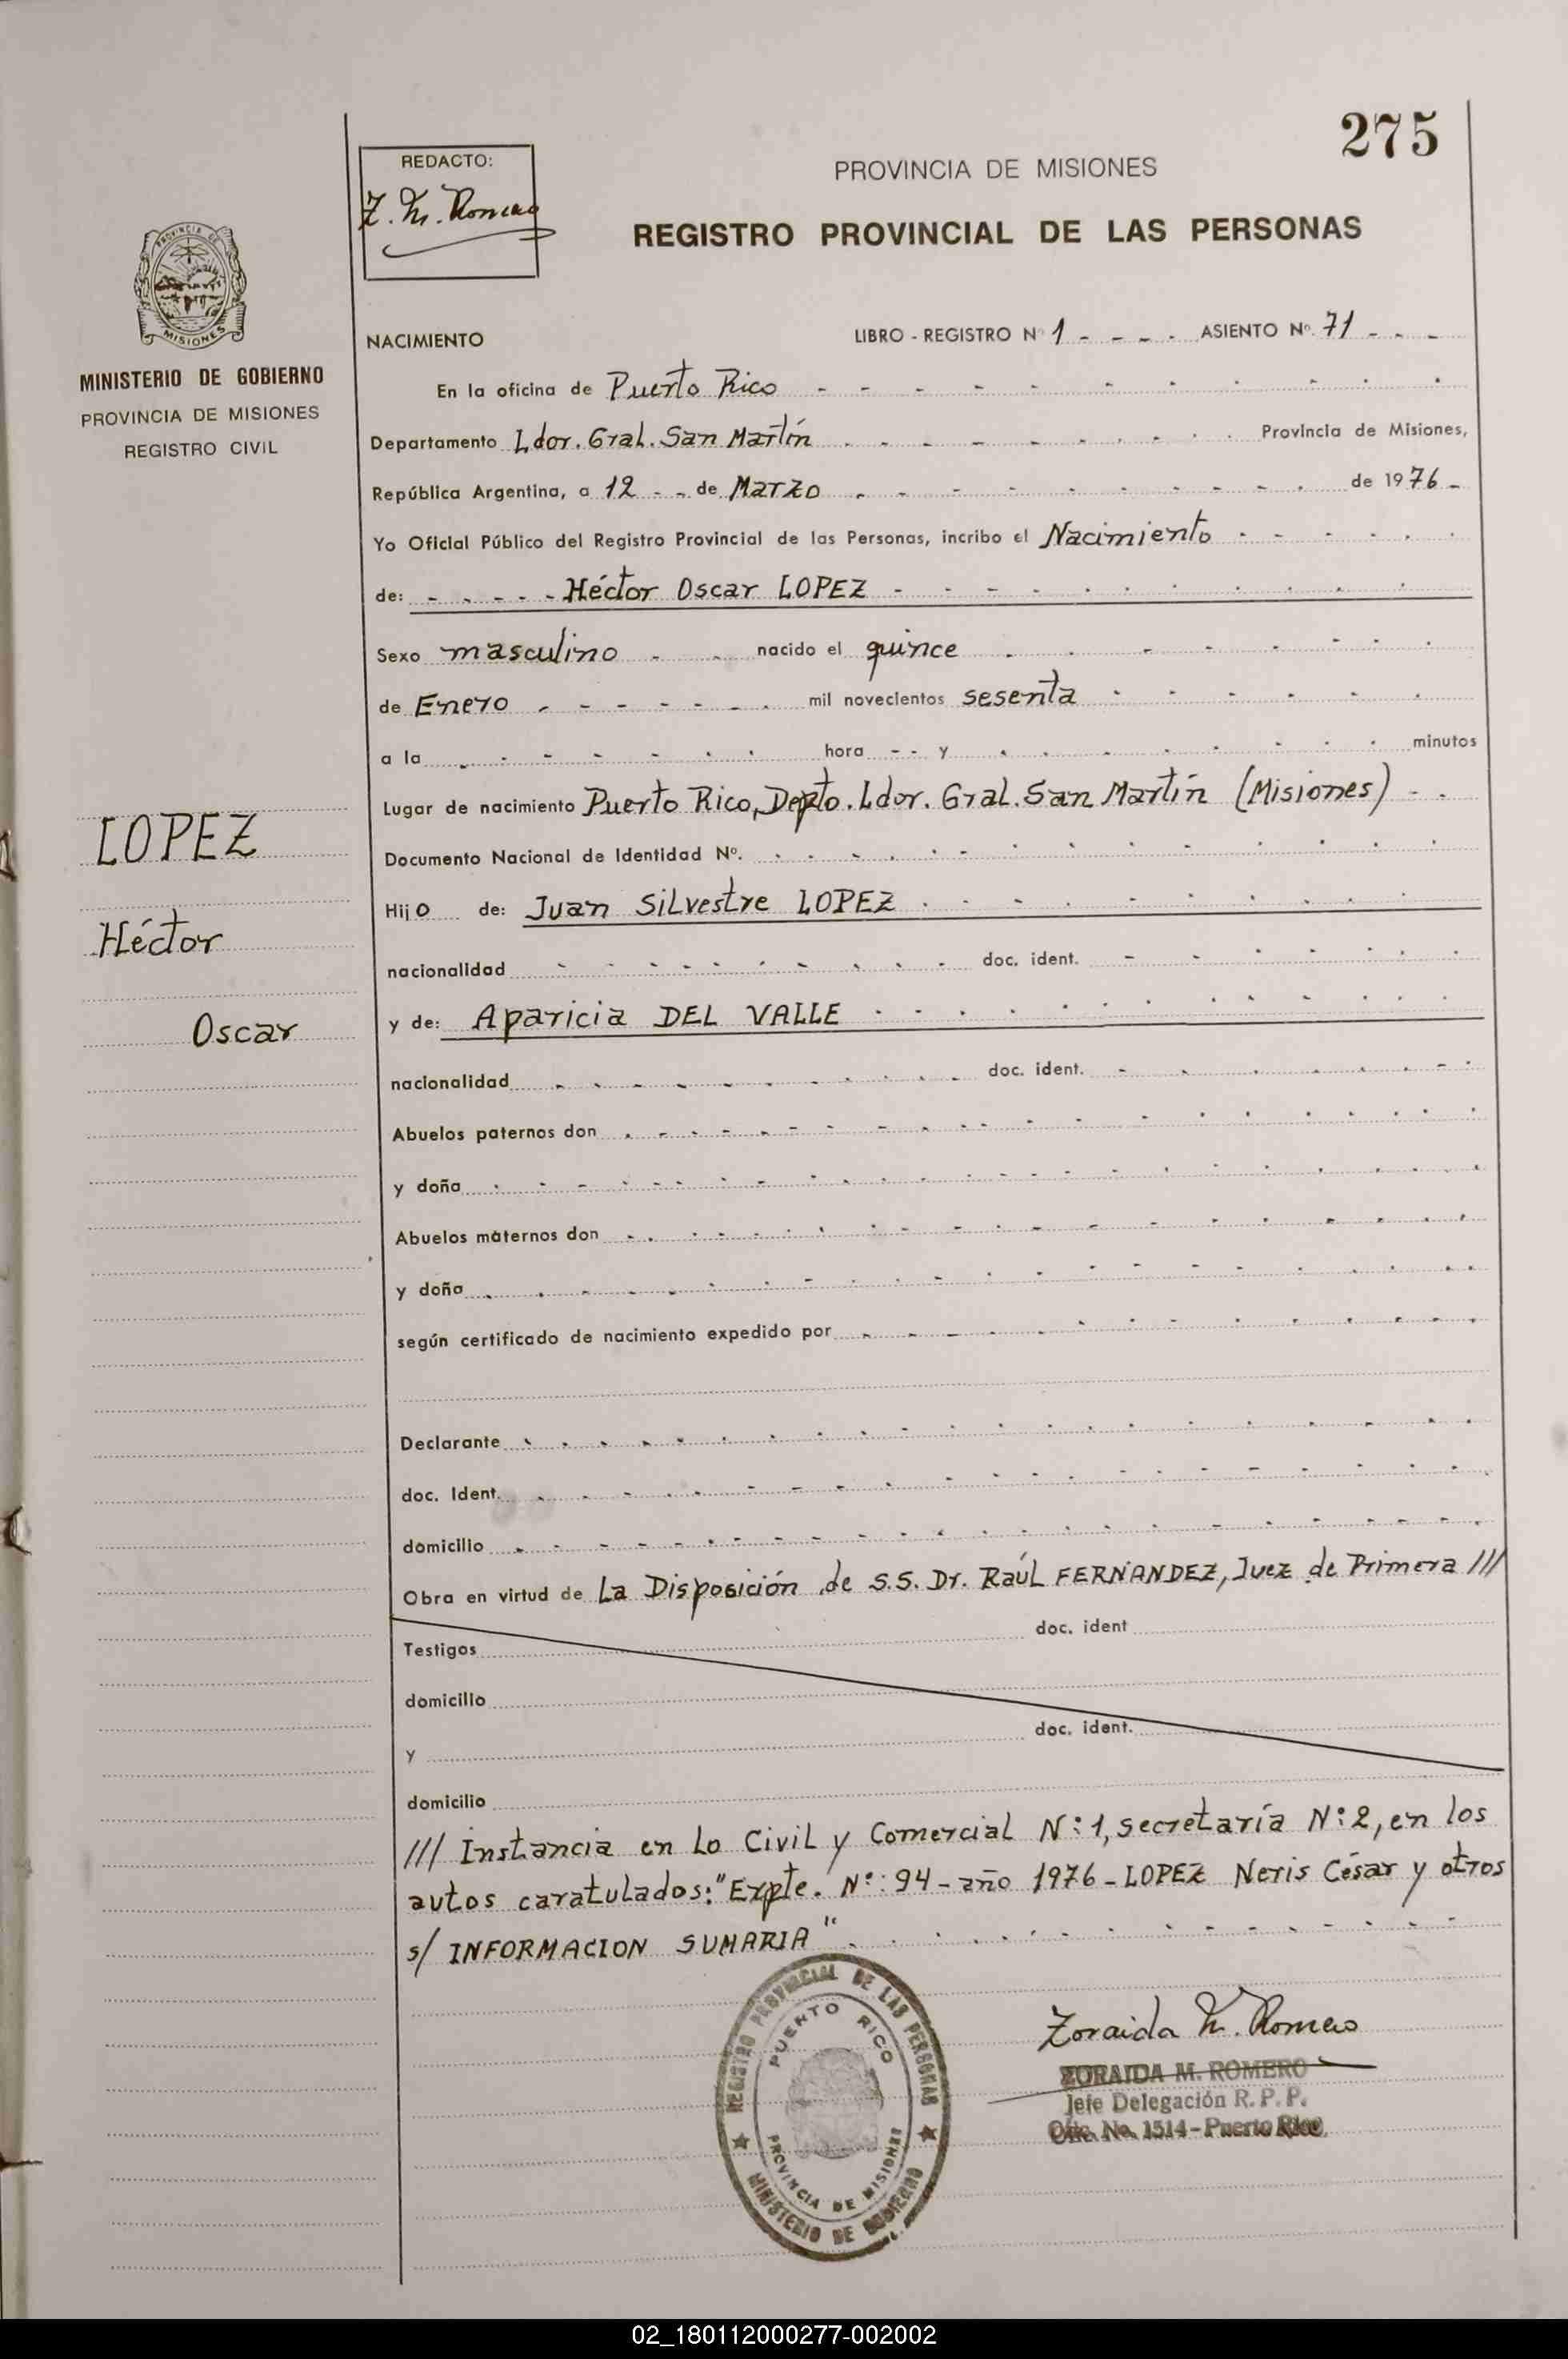 275
REDACTO:
Z. M. Romero
PROVINCIA DE MISIONES
REGISTRO PROVINCIAL DE LAS PERSONAS
PROVINCIA DE
MISIONES
MINISTERIO DE GOBIERNO
PROVINCIA DE MISIONES
REGISTRO CIVIL
NACIMIENTO LIBRO - REGISTRO Nº 1 - - - - ASIENTO Nº. 71 - - -
En la oficina de Puerto Rico
Departamento Ldor. Gral. San Martín Provincia de Misiones,
República Argentina, a 12 - - de Marzo de 1976 -
Yo Oficial Público del Registro Provincial de las Personas, incribo el Nacimiento
de: Héctor Oscar LOPEZ
Sexo masculino nacido el quince
de Enero mil novecientos sesenta
a la hora - - y minutos
Lugar de nacimiento Puerto Rico, Depto. Ldor. Gral. San Martín (Misiones) - -
Documento Nacional de Identidad Nº.
LOPEZ
Héctor
Oscar
Hijo de: Juan Silvestre LOPEZ
nacionalidad doc. ident.
y de: Aparicia DEL VALLE
nacionalidad doc. ident.
Abuelos paternos don
y doña
Abuelos maternos don
y doña
según certificado de nacimiento expedido por
Declarante
doc. Ident.
domicilio
Obra en virtud de La Disposición de S.S. Dr. Raúl FERNANDEZ, Juez de Primera ///
Testigos doc. ident
domicilio
y doc. ident.
domicilio
/// Instancia en Lo Civil y Comercial N:1, secretaría N:2, en los
autos caratulados: "Expte. Nº: 94 - año 1976 - LOPEZ Neris César y otros
s/ INFORMACION SUMARIA"
REGISTRO PROVINCIAL DE LAS PERSONAS
PUERTO RICO
PROVINCIA DE MISIONES
MINISTERIO DE GOBIERNO
Zoraida M. Romero
ZORAIDA M. ROMERO
Jefe Delegación R. P. P.
Ofic. No. 1514 - Puerto Rico
02_180112000277-002002